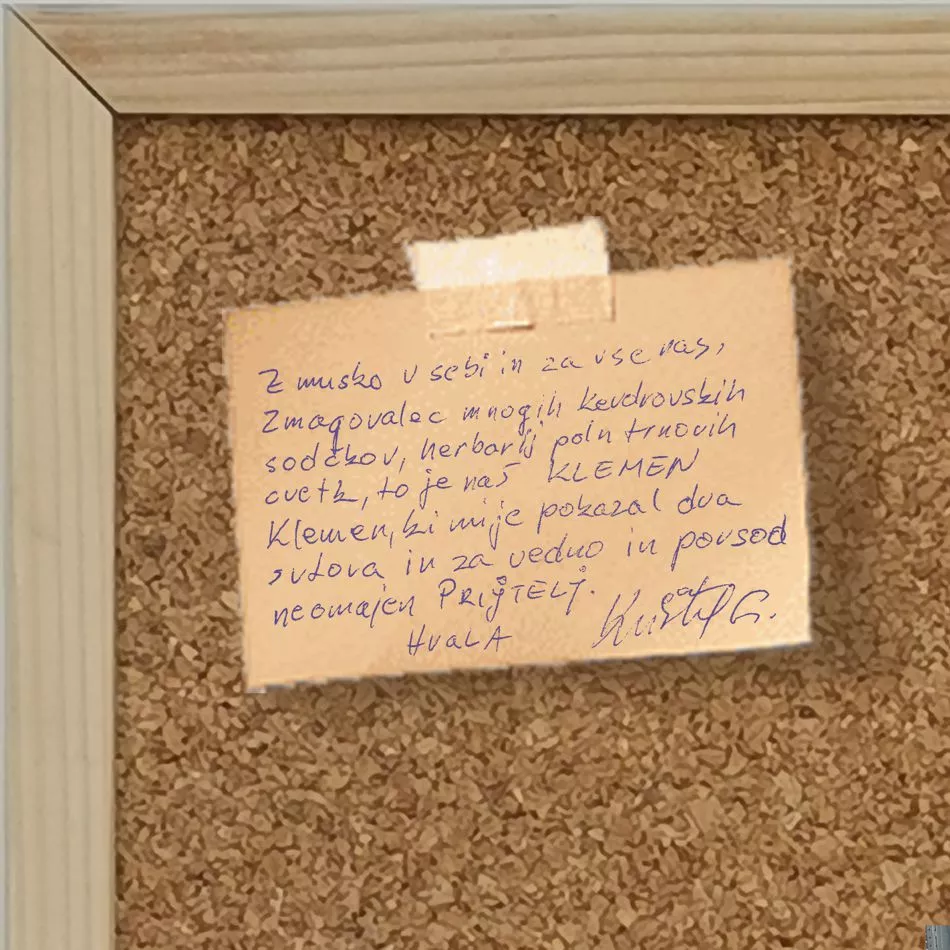 Z musko v sebi in za vse nas,
Zmagovalec mnogih kevdrovskih
sodčkov, herbarij poln trnovih
cvetk, to je naš KLEMEN
Klemen, ki mi je pokazal dva
svtova in za vedno in povsod
neomajen PRIJTELJ.
HvaLA Kuštil G.